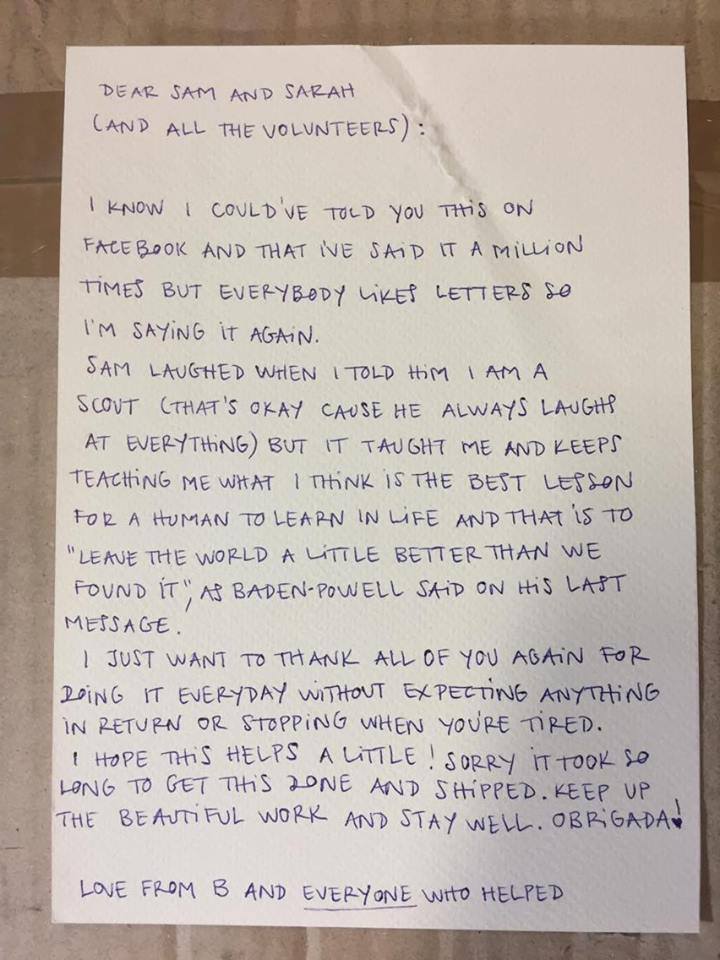 DEAR SAM AND SARAH
(AND ALL THE VOLUNTEERS):
I KNOW I COULD'VE TOLD YOU THIS ON
FACEBOOK AND THAT I'VE SAID IT A MILLION
TIMES BUT EVERYBODY LIKES LETTERS SO
I'M SAYING IT AGAIN.
SAM LAUGHED WHEN I TOLD HIM I AM A
SCOUT (THAT'S OKAY CAUSE HE ALWAYS LAUGHS
AT EVERYTHING) BUT IT TAUGHT ME AND KEEPS
TEACHING ME WHAT I THINK IS THE BEST LESSON
FOR A HUMAN TO LEARN IN LIFE AND THAT IS TO
"LEAVE THE WORLD A LITTLE BETTER THAN WE
FOUND IT", AS BADEN-POWELL SAID ON HIS LAST
MESSAGE.
I JUST WANT TO THANK ALL OF YOU AGAIN FOR
DOING IT EVERYDAY WITHOUT EXPECTING ANYTHING
IN RETURN OR STOPPING WHEN YOU'RE TIRED.
I HOPE THIS HELPS A LITTLE! SORRY IT TOOK SO
LONG TO GET THIS DONE AND SHIPPED. KEEP UP
THE BEAUTIFUL WORK AND STAY WELL. OBRIGADA!
LOVE FROM B AND EVERYONE WHO HELPED